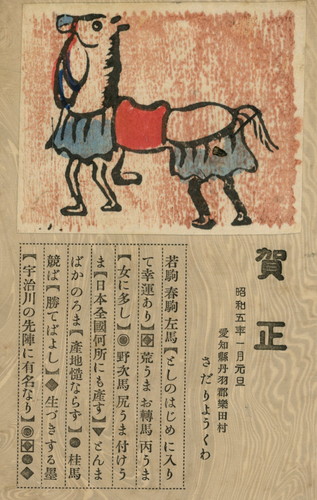 賀正
昭和五年一月元旦
愛知縣丹羽郡樂田村
さだりようくわ
若駒 春駒 左馬【としのはじめに入り
て幸運あり】◈荒うま お轉馬 丙うま
【女に多し】◉野次馬 尻うま 付けう
ま【日本全國何所にも産す】▼とんま
ばか のろま【産地慥ならす】● 桂馬
競ば【勝てばよし】◆生づきする墨
【宇治川の先陣に有名なり】◉◈●◆